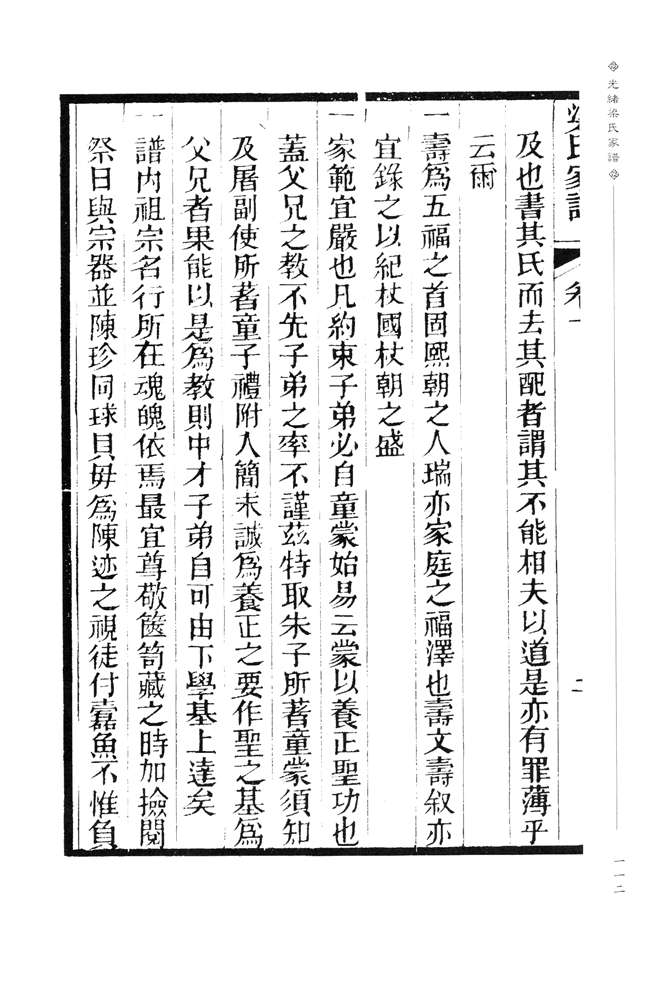 光緒梁氏家譜
一一二
梁氏家譜 卷一 二
及也書其氏而去其配者謂其不能相夫以道是亦有罪薄乎
云爾
一壽爲五福之首固熙朝之人瑞亦家庭之福澤也壽文壽叙亦
宜錄之以紀杖國杖朝之盛
一家範宜嚴也凡約束子弟必自童蒙始易云蒙以養正聖功也
蓋父兄之教不先子弟之率不謹茲特取朱子所著童蒙須知
及屠副使所著童子禮附入簡末誠爲養正之要作聖之基爲
父兄者果能以是爲教則中才子弟自可由下學基上達矣
一譜內祖宗名行所在魂魄依焉最宜尊敬篋笥藏之時加撿閱
祭日與宗器並陳珍同球貝毋爲陳迹之視徒付蠹魚不惟負